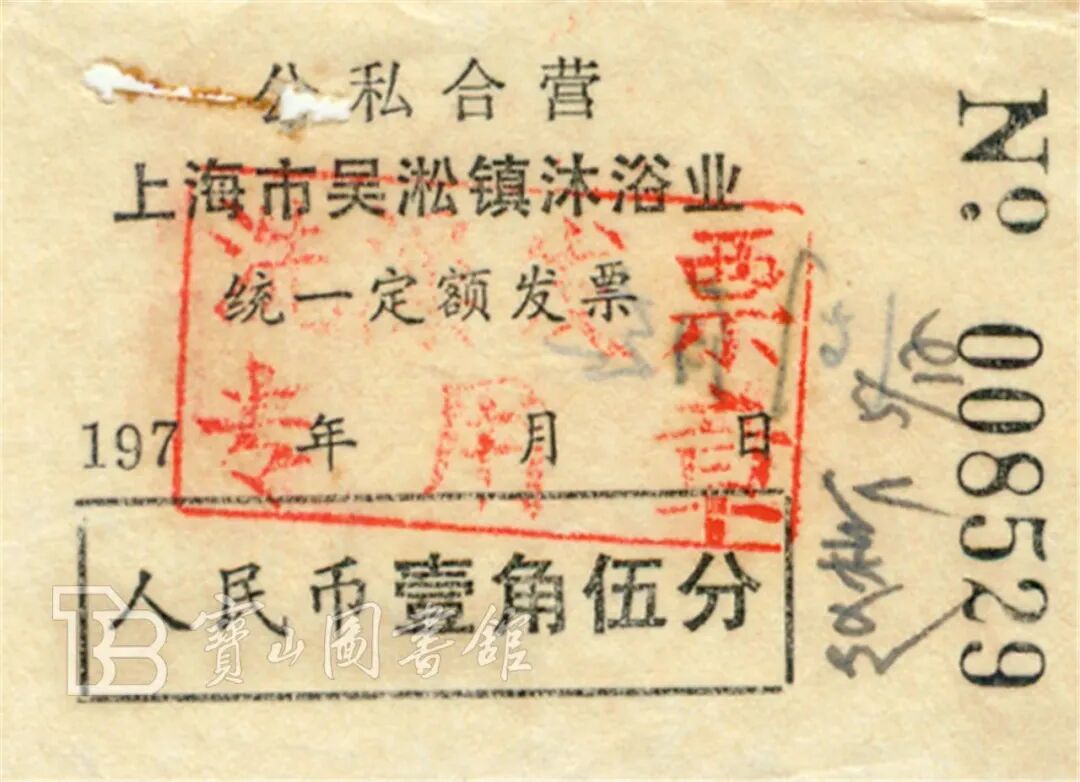 公私合营
上海市吴淞镇沐浴业
统一定额发票
197 年 月 日
人民币壹角伍分
票
专用章
No. 008529
5/10
TB 寶山圖書館